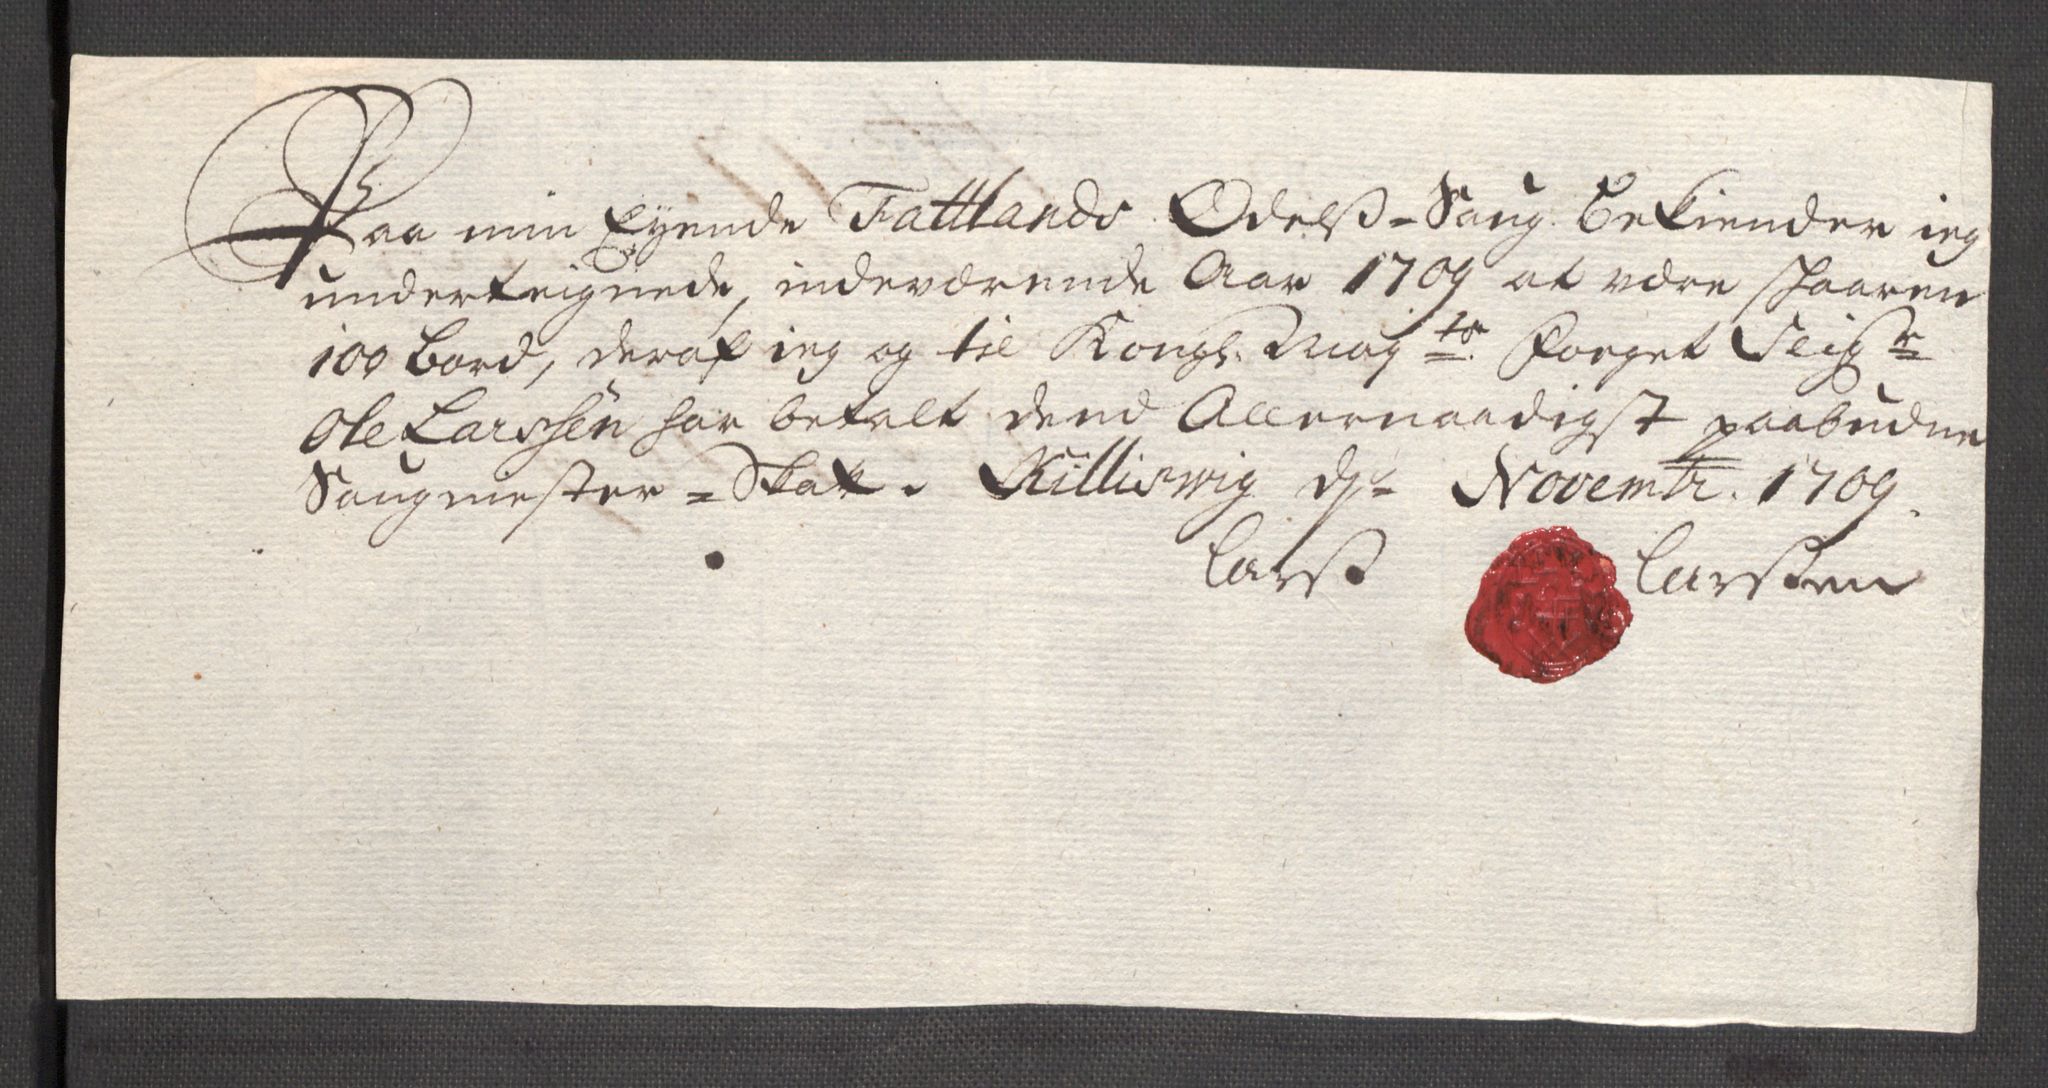 Paa min Eÿende Fattlands Odelß-Saug bekiender ieg
underteignede, indeværende Aar 1709 at være skaaren
100 Bord, deraf ieg og til Kongl. Maÿ<sup>ts</sup> Foeget Seig<sup>r</sup>
Ole Larssen har betalt dend Allernaadigst paabudne
Saugmester-Skat. Killiswig d. Novembr. 1709.
Larß Larssen